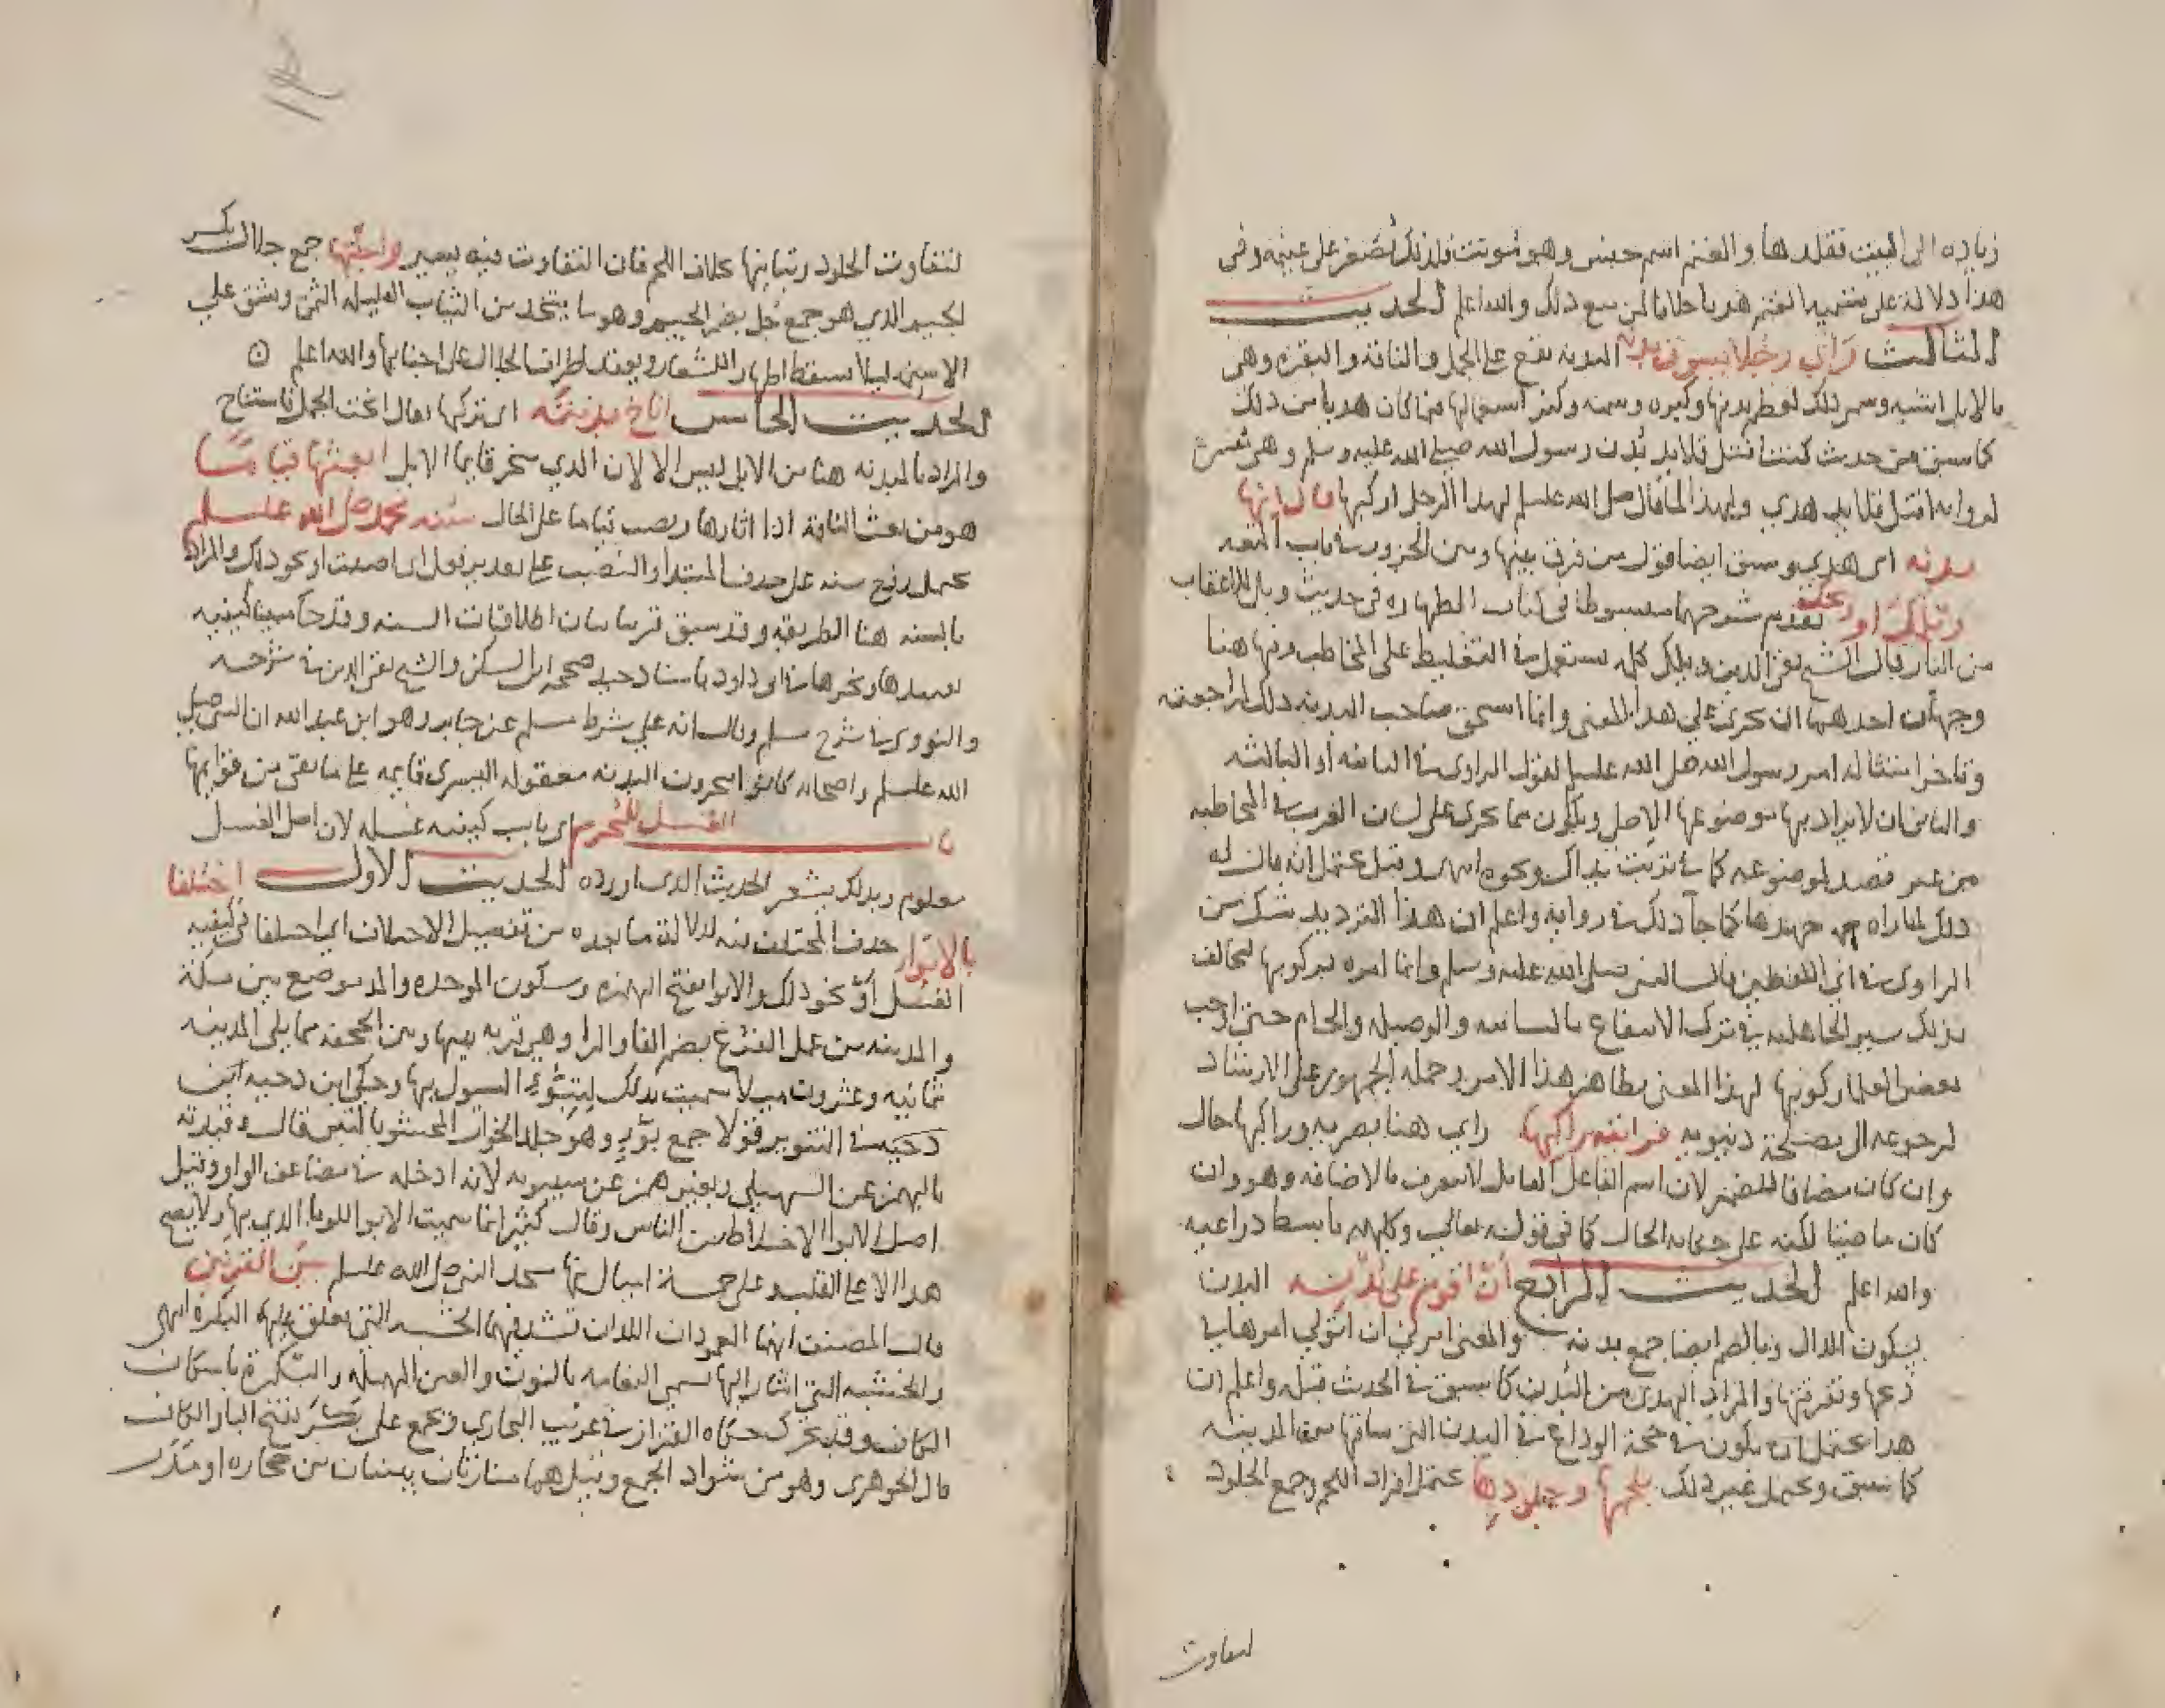 زياده الى البيت فقلدها والغنم اسم جنس وهو مونث فلذلك تصغر على غنيمه وفى
هذا دلالة على تسميه الغنم هديا خلافا لمن منع ذلك والله اعلم الحديث
الثالث رأي رجلا يسوق بدنه البدنه تقع على الجمل والناقة والبقرة وهى
بالابل اشبه وسمى ذلك لعظم بدنها وكبره وسمنه وكثر استعمالها فيما كان هديا من ذلك
كما سبق من حديث كنت افتل قلايد بدن رسول الله صلى الله عليه وسلم وهى تفسر
لروايه افتل قلايد هدي ولهذا لما قال صلى الله عليه وسلم لهذا الرجل اركبها قال انها
بدنه اى هدي وسبق ايضا قول من فرق بينها وبين الجزور في باب المتعه
ويلك او ويحك تقدم شرحهما مبسوطا فى كتاب الطهاره فى حديث ويل للاعقاب
من النار قال الشيخ تقي الدين ويلك كلمه تستعمل في التغليظ على المخاطب وفيها هنا
وجهان احدهما ان تجرى على هذا المعنى وانما استحق صاحب البدنه ذلك لمراجعته
وتاخر امتثاله امر رسول الله صلى الله عليه وسلم لقول الراوى في الثانيه او الثالثه
والثانى ان لا يراد بها موضوعها الاصلى ويكون مما يجرى على لسان العرب في المخاطبه
من غير قصد لموضوعه كما في تربت يداك ونحوه انتهى وقيل يحتمل انه قال له
ذلك لما راه جهدها كما جآ ذلك في رواية واعلم ان هذا الترديد شك من
الراوى في اى اللفظين قال النبى صلى الله عليه وسلم وانما امره بركوبها ليخالف
بذلك سير الجاهليه في ترك الانتفاع بالسائبه والوصيله والحام حتى اوجب
بعض العلما ركوبها لهذا المعنى بظاهر هذا الامر وحمله الجمهور على الارشاد
لرجوعه الى مصلحة دنيويه فرايته راكبها راي هنا بصريه وراكبها حال
وان كان مضافا للضمير لان اسم الفاعل العامل لا يتعرف بالاضافه وهو وان
كان ماضيا لكنه على حكايه الحال كما فى قوله تعالى وكلبهم باسط ذراعيه
والله اعلم الحديث الرابع أن اقوم على بدنه البدن
بسكون الدال وبالضم ايضا جمع بدنه والمعنى امرنى ان اتولى امرها في
ذبحها وتفرقتها والمراد الهدى من البدن كما سبق في الحديث قبله واعلم ان
هذا يحتمل ان يكون في حجة الوداع في البدن التى ساقها من المدينه
كما سبق ويحتمل غير ذلك بلحمها وجلودها يحتمل افراد اللحم وجمع الجلود
لتفاوت
لتفاوت الجلود وتباينها بخلاف اللحم فان التفاوت فيه يسير واجلتها جمع جلال بكسر
الجيم الذي هو جمع جل بضم الجيم وهو ما يتخذ من الثياب القليله الثمن ويشق على
الاسنمه ليلا يسقط اظهار الشعار ويعقد اطراف الجلال على اجنابها والله اعلم ⵙ
الحديث الخامس اناخ بدنته اى بركها يقال انخت الجمل فاستناخ
والمراد بالبدنه هنا من الابل ليس الا لان الذي ينحر قايما الابل ابعثها قياما
هو من بعث الناقة اذا اثارها ونصب قياما على الحال سنه محمد صلى الله عليه وسلم
يحتمل رفع سنه على حذف المبتدا والنصب على تقدير فعل اى اصبت او نحو ذلك والمراد
بالسنه هنا الطريقه وقد سبق قريبا بيان اطلاقات السنه وقد جآ مبينا كيفيه
تقييدها ونحرها في ابى داود باسناد جيد صححه ابن السكن والشيخ تقي الدين في شرحه
والنووى في شرح مسلم وقال انه على شرط مسلم عن جابر وهو ابن عبد الله ان النبى صلى
الله عليه وسلم واصحابه كانوا ينحرون البدنه معقوله اليسرى قايمه على ما بقى من قوايمها
باب الغسل للمحرم اى باب كيفيه غسله لان اصل الغسل
معلوم وبذلك يشعر الحديث الذى اورده الحديث الاول اختلفا
بالابوا حذف المختلف فيه لدلالة ما بعده من تفصيل الاختلاف اى اختلفا فى كيفيه
الغسل او نحو ذلك والابوا بفتح الهمزه وسكون الموحده والمد موضع بين مكة
والمدينه من عمل الفرع بضم الفا والرا وهى قريه بينها وبين الجحفه مما يلى المدينه
ثمانيه وعشرون ميلا سميت بذلك لتبوء السيول بها وحكى ابن دحيه ابن
دحيه في التنوير قولا جمع بوّ وهو جلد الحوار المحشو بالتبن قال وقيدته
بالهمز عن السهيلى وبغير همز عن سيبويه لانه ادخله في مضاعف الواو وقيل
اصل الابوا الاخلاط من الناس وقال كثير انما سميت الابوا للوبا الذي بها ولا يصح
هذا الا على القلب وعلى خمسة اميال منها مسجد النبى صلى الله عليه وسلم بين القرنين
قال المصنف انهما العمودان اللذان تشد فيهما الخشبه التى تعلق عليها البكره انتهى
والخشبه التى اشار اليها تسمى النعامه بالنون والعين المهمله والبكرة باسكان
الكاف وقد تحرك حكاه القزاز في غريب البخارى وتجمع على بكر بفتح البا والكاف
قال الجوهرى وهو من شواذ الجمع وقيل هما منارتان يبنيان من حجاره او مدر